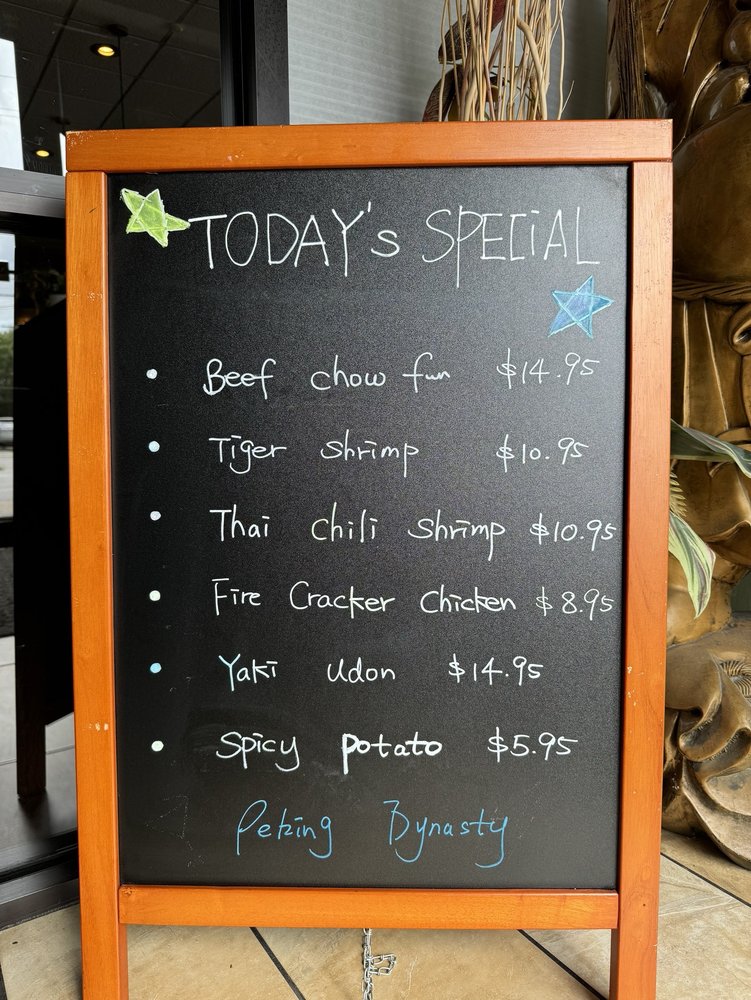 TODAY's SPECIAL
• Beef chow fun $14.95
• Tiger shrimp $10.95
• Thai chili shrimp $10.95
• Fire Cracker chicken $8.95
• Yaki Udon $14.95
• Spicy potato $5.95
Peking Dynasty